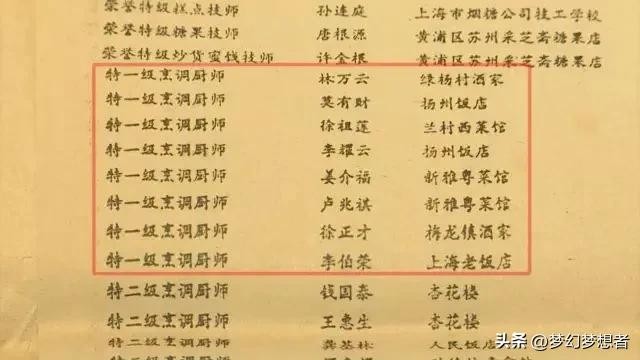 荣誉特级糕点技师 孙连庭 上海市烟糖公司技工学校
荣誉特级糖果技师 唐根源 黄浦区苏州采芝斋糖果店
荣誉特级炒货蜜饯技师 许金根 黄浦区苏州采芝斋糖果店
特一级烹调厨师 林万云 绿杨村酒家
特一级烹调厨师 莫有财 扬州饭店
特一级烹调厨师 徐祖莲 兰村西菜馆
特一级烹调厨师 李耀云 扬州饭店
特一级烹调厨师 姜介福 新雅粤菜馆
特一级烹调厨师 卢兆祺 新雅粤菜馆
特一级烹调厨师 徐正才 梅龙镇酒家
特一级烹调厨师 李伯荣 上海老饭店
特二级烹调厨师 钱国泰 杏花楼
特二级烹调厨师 王惠生 杏花楼
特二级烹调厨师 龚基林 人民饭店
头条 @梦幻梦想者